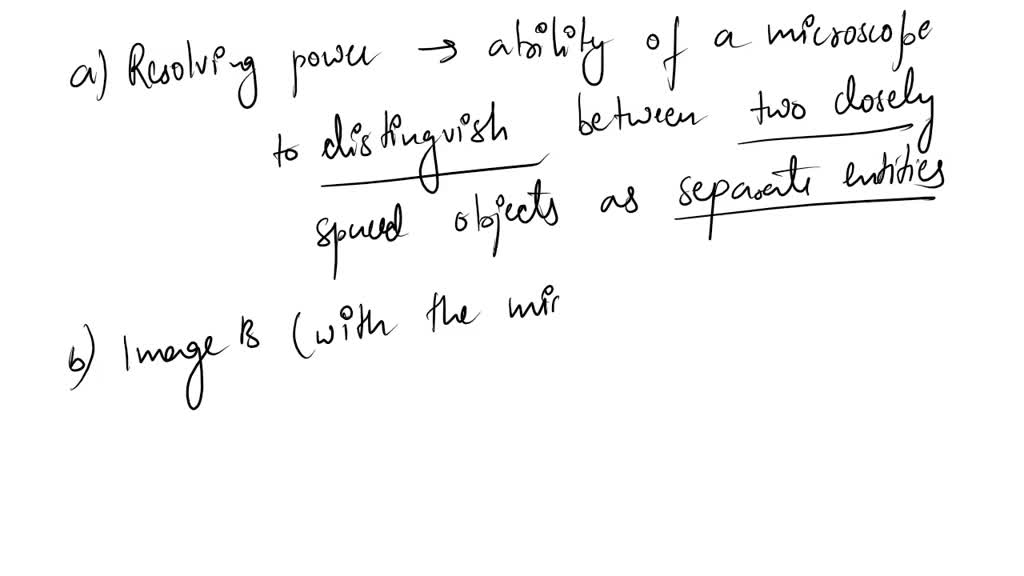 a) Resolving power → ability of a microscope
to distinguish between two closely
spaced objects as separate entities
b) Image B (with the mic